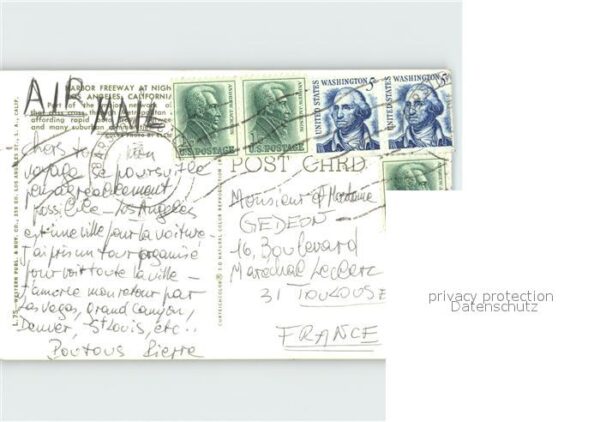 HARBOR FREEWAY AT NIGH
LOS ANGELES, CALIFORNIA
Part of the major network o
affording rapid
and many suburban
AIR MAIL
U.S. POSTAGE
U.S. POSTAGE
UNITED STATES
WASHINGTON 5c
UNITED STATES
WASHINGTON 5c
POST CARD
Chers tous mon
voyage se poursuit le
plus agréablement
possible - Los Angeles
est une ville pour la voiture -
J'ai pris un tour organisé
pour voir toute la ville -
J'amorce mon retour par
Las Vegas, Grand Canyon,
Denver, St Louis, etc..
Poutous Pierre
Monsieur et Madame
GEDEON
16, Boulevard
Maréchal Leclerc
31 TOULOUSE
FRANCE
privacy protection
Datenschutz